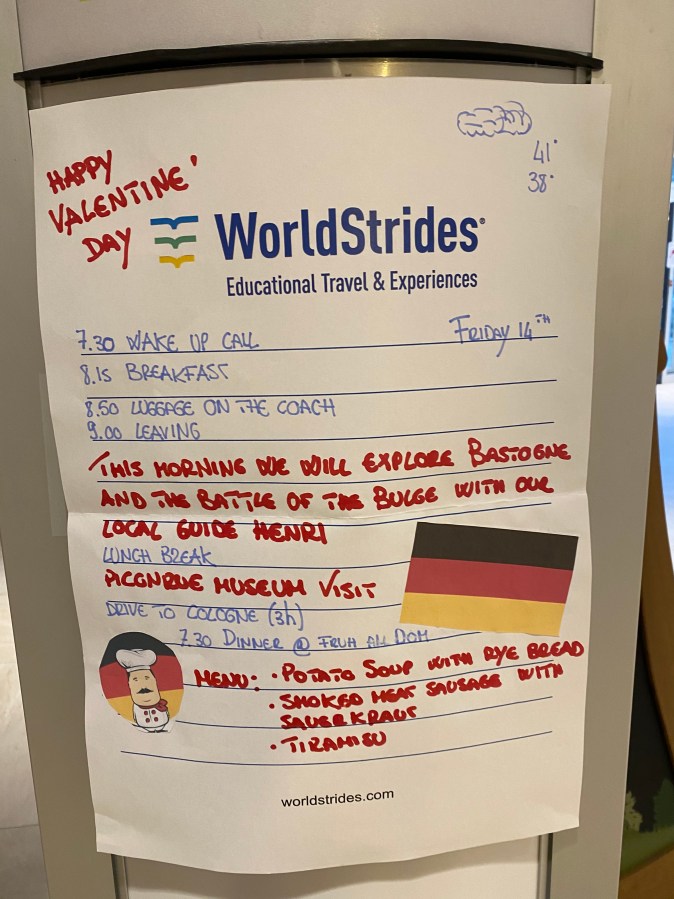 HAPPY
VALENTINE'
DAY
41°
38°
WorldStrides®
Educational Travel & Experiences
FRIDAY 14TH
7.30 WAKE UP CALL
8.15 BREAKFAST
8.50 LUGGAGE ON THE COACH
9.00 LEAVING
THIS MORNING WE WILL EXPLORE BASTOGNE
AND THE BATTLE OF THE BULGE WITH OUR
LOCAL GUIDE HENRI
LUNCH BREAK
MUSEUM VISIT
DRIVE TO COLOGNE (3h)
7.30 DINNER @ FRUH AM DOM
MENU: • POTATO SOUP WITH RYE BREAD
• SMOKED MEAT SAUSAGE WITH
SAUERKRAUT
• TIRAMISU
worldstrides.com